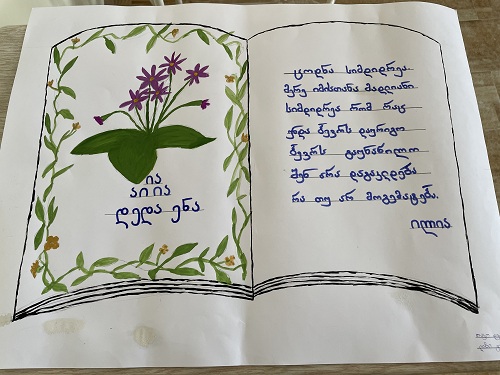 ია
აი ია
დედა ენა
ცოდნა სიმდიდრეა
მერე იმისთანა მადლიანი
სიმდიდრეა რომ რაც
უნდა ბევრს დაურიგო
ბევრს გაუნაწილო
შენ არა დაგაკლდება
რა თუ არ მოგემატება.
ილია